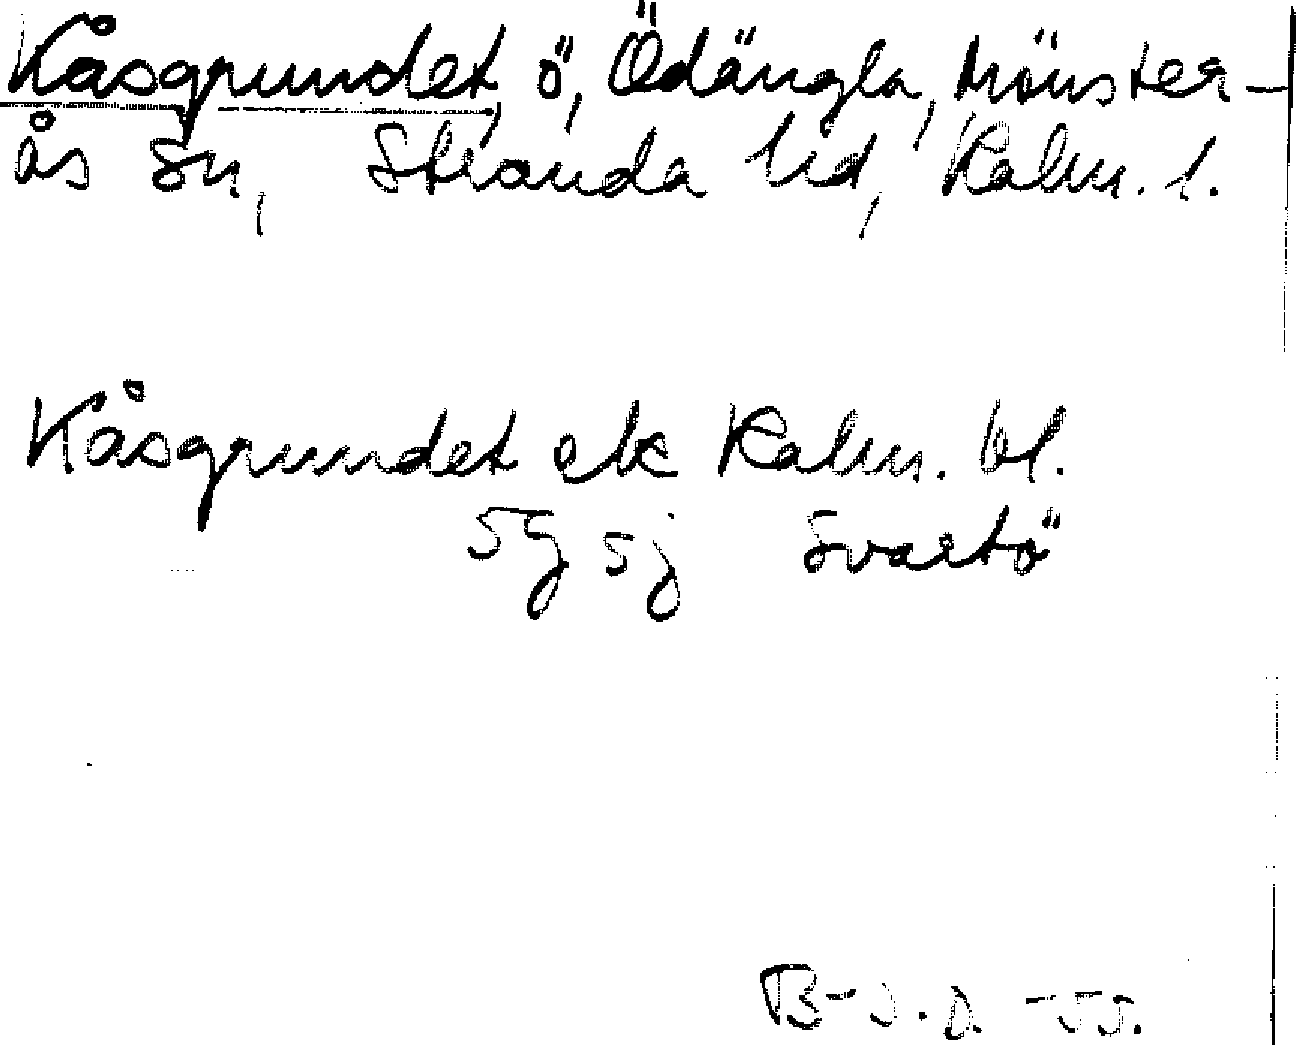 Kåsgrundet, ö, Ödängla, Mönster-
ås sn, Stranda hd, Kalm. l.
Kåsgrundet ek Kalm. bl.
5g 5j Svartö
B-J.D. -55.